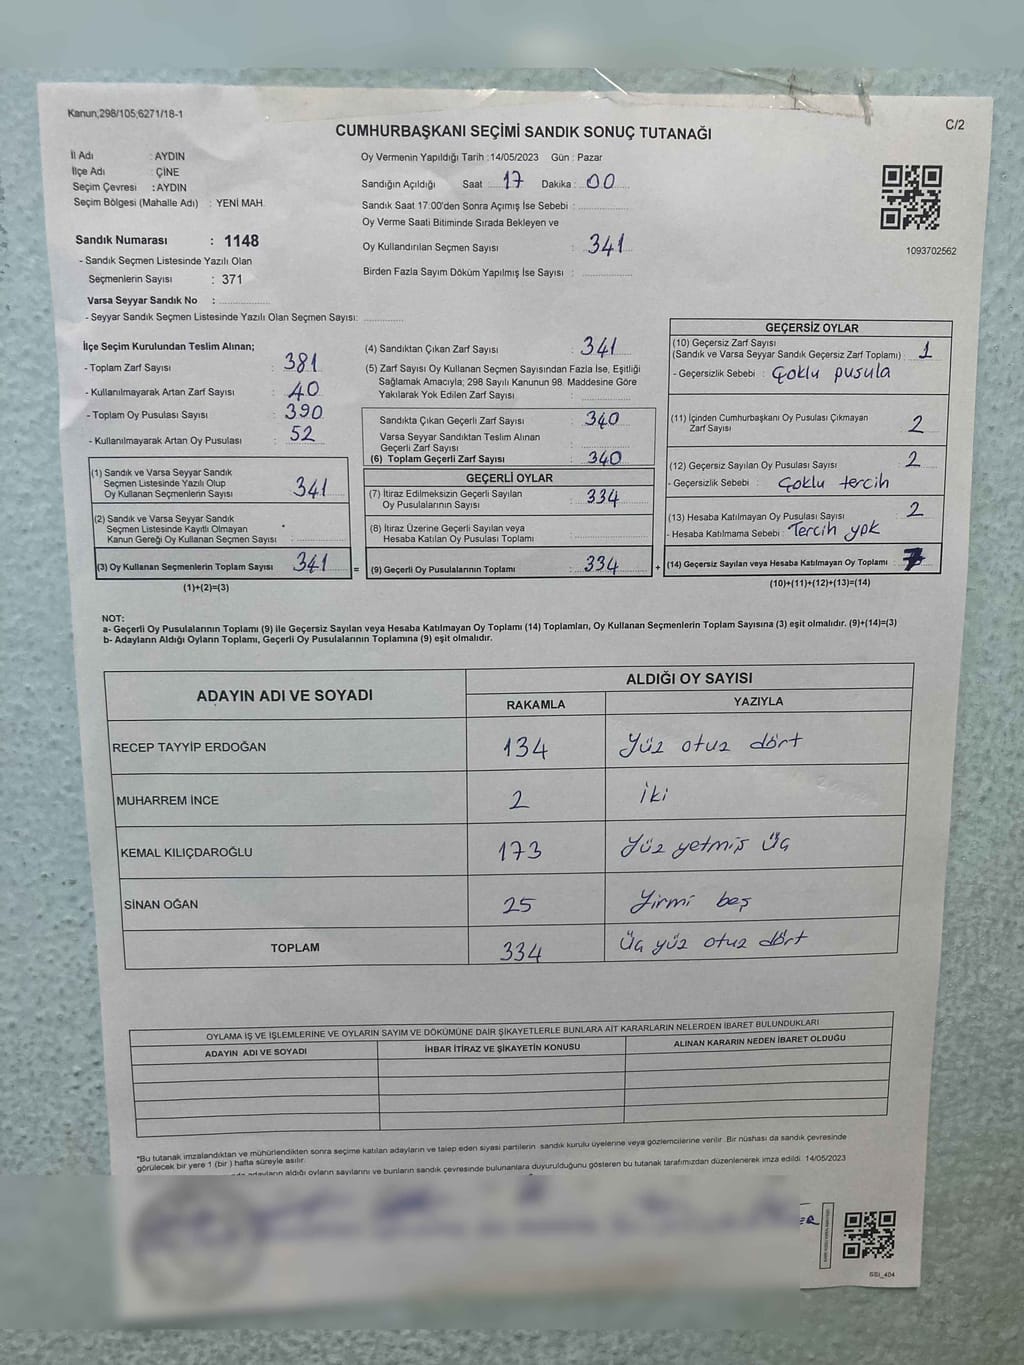 Kanun;298/105;6271/18-1
C/2
CUMHURBAŞKANI SEÇİMİ SANDIK SONUÇ TUTANAĞI
İl Adı : AYDIN
İlçe Adı : ÇİNE
Seçim Çevresi : AYDIN
Seçim Bölgesi (Mahalle Adı) : YENİ MAH.
Sandık Numarası : 1148
- Sandık Seçmen Listesinde Yazılı Olan
Seçmenlerin Sayısı : 371
Varsa Seyyar Sandık No :
- Seyyar Sandık Seçmen Listesinde Yazılı Olan Seçmen Sayısı:
Oy Vermenin Yapıldığı Tarih : 14/05/2023 Gün : Pazar
Sandığın Açıldığı Saat : 17 Dakika : 00
Sandık Saat 17:00'den Sonra Açımış İse Sebebi :
Oy Verme Saati Bitiminde Sırada Bekleyen ve
Oy Kullandırılan Seçmen Sayısı : 341
Birden Fazla Sayım Döküm Yapılmış İse Sayısı :
1093702562
İlçe Seçim Kurulundan Teslim Alınan;
- Toplam Zarf Sayısı : 381
- Kullanılmayarak Artan Zarf Sayısı : 40
- Toplam Oy Pusulası Sayısı : 390
- Kullanılmayarak Artan Oy Pusulası : 52
(1) Sandık ve Varsa Seyyar Sandık
Seçmen Listesinde Yazılı Olup
Oy Kullanan Seçmenlerin Sayısı : 341
(2) Sandık ve Varsa Seyyar Sandık
Seçmen Listesinde Kayıtlı Olmayan
Kanun Gereği Oy Kullanan Seçmen Sayısı :
(3) Oy Kullanan Seçmenlerin Toplam Sayısı : 341
(1)+(2)=(3)
(4) Sandıktan Çıkan Zarf Sayısı : 341
(5) Zarf Sayısı Oy Kullanan Seçmen Sayısından Fazla İse, Eşitliği
Sağlamak Amacıyla; 298 Sayılı Kanunun 98. Maddesine Göre
Yakılarak Yok Edilen Zarf Sayısı :
Sandıkta Çıkan Geçerli Zarf Sayısı : 340
Varsa Seyyar Sandıktan Teslim Alınan
Geçerli Zarf Sayısı :
(6) Toplam Geçerli Zarf Sayısı : 340
GEÇERLİ OYLAR
(7) İtiraz Edilmeksizin Geçerli Sayılan
Oy Pusulalarının Sayısı : 334
(8) İtiraz Üzerine Geçerli Sayılan veya
Hesaba Katılan Oy Pusulası Toplamı :
= (9) Geçerli Oy Pusulalarının Toplamı : 334
GEÇERSİZ OYLAR
(10) Geçersiz Zarf Sayısı
(Sandık ve Varsa Seyyar Sandık Geçersiz Zarf Toplamı) : 1
- Geçersizlik Sebebi : Çoklu pusula
(11) İçinden Cumhurbaşkanı Oy Pusulası Çıkmayan
Zarf Sayısı : 2
(12) Geçersiz Sayılan Oy Pusulası Sayısı : 2
- Geçersizlik Sebebi : Çoklu tercih
(13) Hesaba Katılmayan Oy Pusulası Sayısı : 2
- Hesaba Katılmama Sebebi : Tercih yok
+ (14) Geçersiz Sayılan veya Hesaba Katılmayan Oy Toplamı : 7
(10)+(11)+(12)+(13)=(14)
NOT:
a- Geçerli Oy Pusulalarının Toplamı (9) ile Geçersiz Sayılan veya Hesaba Katılmayan Oy Toplamı (14) Toplamları, Oy Kullanan Seçmenlerin Toplam Sayısına (3) eşit olmalıdır. (9)+(14)=(3)
b- Adayların Aldığı Oyların Toplamı, Geçerli Oy Pusulalarının Toplamına (9) eşit olmalıdır.
ADAYIN ADI VE SOYADI
ALDIĞI OY SAYISI
RAKAMLA YAZIYLA
RECEP TAYYİP ERDOĞAN 134 Yüz otuz dört
MUHARREM İNCE 2 İki
KEMAL KILIÇDAROĞLU 173 Yüz yetmiş üç
SİNAN OĞAN 25 Yirmi beş
TOPLAM 334 Üç yüz otuz dört
OYLAMA İŞ VE İŞLEMLERİNE VE OYLARIN SAYIM VE DÖKÜMÜNE DAİR ŞİKAYETLERLE BUNLARA AİT KARARLARIN NELERDEN İBARET BULUNDUKLARI
ADAYIN ADI VE SOYADI İHBAR İTİRAZ VE ŞİKAYETİN KONUSU ALINAN KARARIN NEDEN İBARET OLDUĞU
*Bu tutanak imzalandıktan ve mühürlendikten sonra seçime katılan adayların ve talep eden siyasi partilerin sandık kurulu üyelerine veya gözlemcilerine verilir. Bir nüshası da sandık çevresinde
görülecek bir yere 1 (bir ) hafta süreyle asılır.
adayların aldığı oyların sayılarını ve bunların sandık çevresinde bulunanlara duyurulduğunu gösteren bu tutanak tarafımızdan düzenlenerek imza edildi. 14/05/2023
SSİ_404